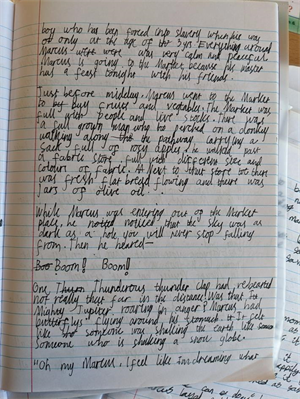 boy who has ben forced into slavery when he was
only at the age of the 3yrs. Everything around
Marcus were were was very calm and peaceful
Marcus is going to the Market because his master
has a feast tonight with his friends.
Just before midday, Marcus went to the Market
to buy fruits and vegetables. The Market was
full with people and live stocks. There was
a full grown man who he perched on a donkey
walking along the pathway carrying a
sack full of rose apples. he walked past
a fabric store full with different size and
colours of fabric. At Next to that store there
was fresh flat bread flowing and there was
jars of olive oil.
While Marcus was entering out of the Market
place, he notted noticed that the sky was as
dark as a hole you will never stop falling
from. Then he heared—
Boo Boom! Boom!!
One Thunderous thunder clap had
not really that far in the distance. Was that the
Mighty Jupiter roaring in anger? Marcus had
butterflys flying around his stomach. It felt
like god someone was shaking the earth like
someone who is shaking a snow globe.
"Oh my Marcus, I feel like im dreaming what